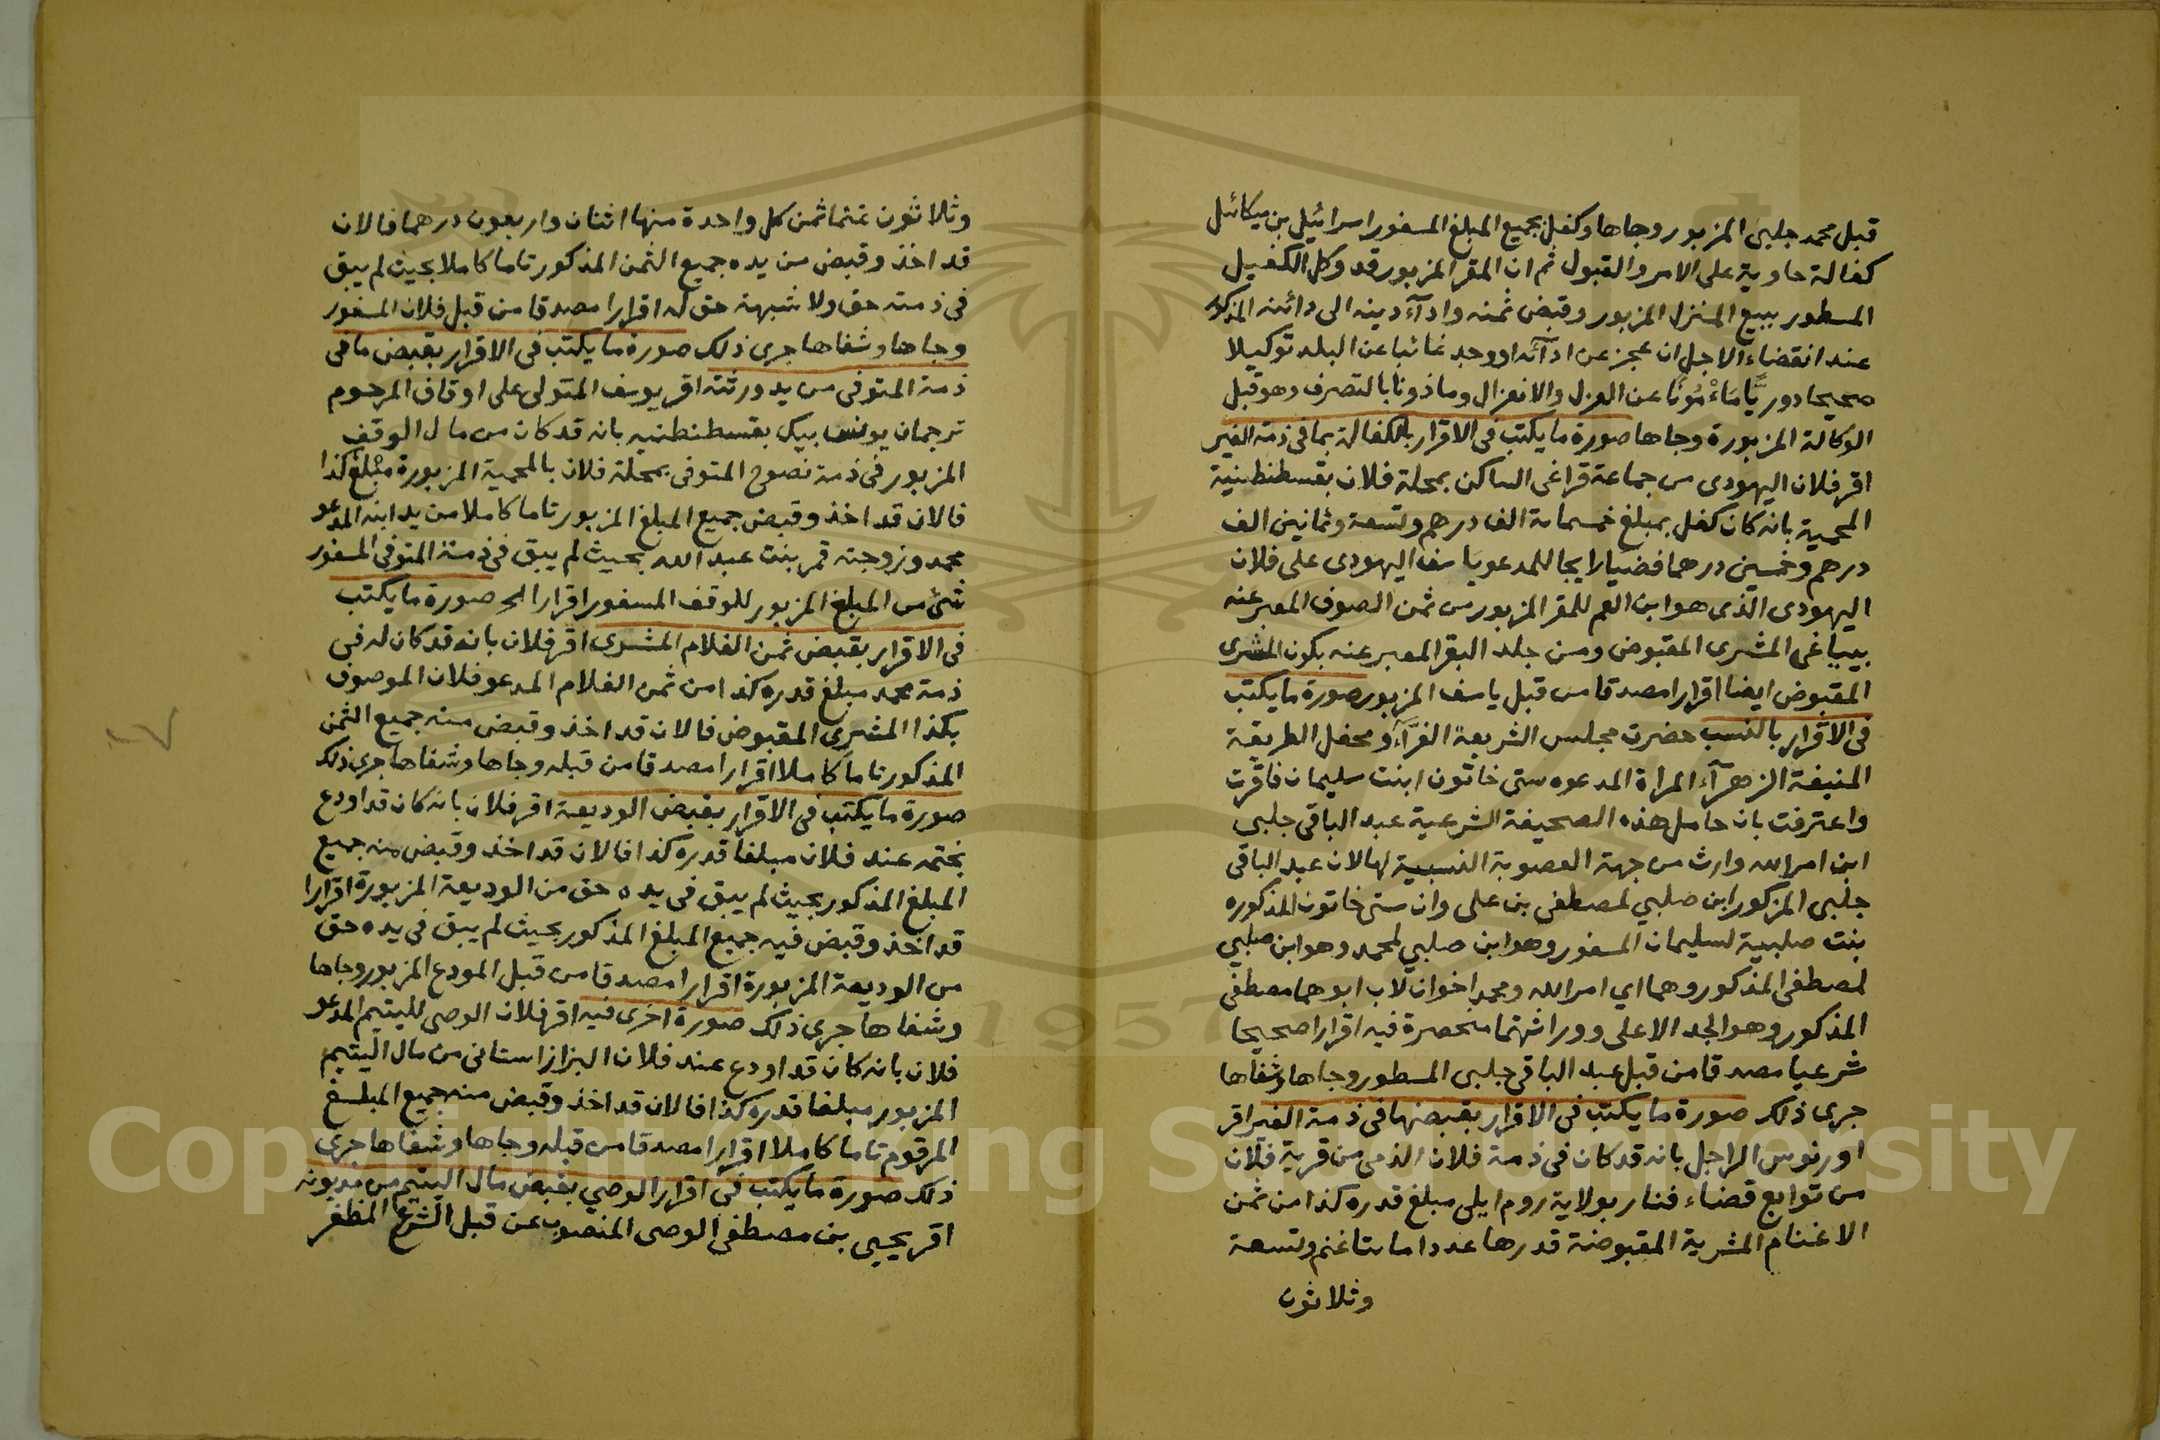 قبل محمد جلبى المزبور وجاها وكفل بجميع المبلغ المسفور اسرائيل بن ميكائيل
كفالة حاوية على الامر والقبول ثم ان المقر المزبور قد وكل الكفيل
المسطور ببيع المنزل المزبور وقبض ثمنه واداء دينه الى دائنه المذكور
عند انقضاء الاجل ان عجز عن ادآئه او وجد غائبا عن البلد توكيلا
صحيحا دوريًّا مَاءْمُونًا عن العزل والانعزال وماذونا بالتصرف وهو قبل
الوكالة المزبورة وجاها صورة ما يكتب فى الاقرار بالكفالة بما فى ذمة الغير
اقر فلان اليهودى من جماعة قراغى الساكن بمحلة فلان بقسطنطينية
المحمية بانه كان كفل بمبلغ خمسمائة الف درهم وتسعة وثمانين الف
درهم وخمسين درهما فضيا رايجا للمدعو ياسف اليهودى على فلان
اليهودى الذى هو ابن العم للمقر المزبور من ثمن الصوف المعبر عنه
بيباغى المشرى المقبوض ومن جلد البقر المعبر عنه بكون المشرى
المقبوض ايضا اقرارا مصدقا من قبل ياسف المزبور صورة ما يكتب
فى الاقرار بالنسب حضرت مجلس الشريعة الغرّآء ومحفل الطريقة
المنيفة الزهرآء المراة المدعوه ستى خاتون ابنت سليمان فاقرت
واعترفت بان حامل هذه الصحيفة الشرعية عبد الباقى جلبى
ابن امر الله وارث من جهة العصوبة النسبية لها لان عبد الباقى
جلبى المزكور ابن صلبي لمصطفى بن على وان ستى خاتون المذكوره
بنت صلبية لسليمان المسفور وهو ابن صلبي لمحمد وهو ابن صلبي
لمصطفى المذكور وهما اي امر الله ومحمد اخوان لاب ابوهما مصطفى
المذكور وهو الجد الاعلى ووراثهتما منحصرة فيه اقرارا صحيحا
شرعيا مصدقا من قبل عبد الباقى جلبى المسطور وجاها وشفاها
جرى ذلك صورة ما يكتب فى الاقرار بقبضها فى ذمة الغير اقر
اورنوس الراجل بانه قد كان فى ذمة فلان الذمى من قرية فلان
من توابع قضاء فنار بولاية روم ايلى مبلغ قدره كذا من ثمن
الاغنام المشرية المقبوضة قدرها عددا مائتا غنم وتسعة
وثلاثون
وثلاثون غنما ثمن كل واحدة منها اثنان واربعون درهما فالان
قد اخذ وقبض من يده جميع الثمن المذكور تاما كاملا بحيث لم يبق
فى ذمته حق ولا شبهة حق له اقرارا مصدقا من قبل فلان المسفور
وجاها وشفاها جرى ذلك صورة ما يكتب فى الاقرار بقبض ما فى
ذمة المتوفى من يد ورثته اقر يوسف المتولى على اوقاف المرحوم
ترجمان يونس بيك بقسطنطنيه بانه قد كان من مال الوقف
المزبور فى ذمة نصوح المتوفى بمحلة فلان بالمحمية المزبورة مبلغ كذا
فالان قد اخذ وقبض جميع المبلغ المزبور تاما كاملا من يد ابنه المدعو
محمد وزوجته قمر بنت عبد الله بحيث لم يبق فى ذمة المتوفى المسفور
شئ من المبلغ المزبور للوقف المسفور اقرارا الخ صورة ما يكتب
فى الاقرار بقبض ثمن الغلام المشرى اقر فلان بانه قد كان له فى
ذمة محمد مبلغ قدره كذا من ثمن الغلام المدعو فلان الموصوف
بكذا المشرى المقبوض فالان قد اخذ وقبض منه جميع الثمن
المذكور تاما كاملا اقرارا مصدقا من قبله وجاها وشفاها جرى ذلك
صورة ما يكتب فى الاقرار بقبض الوديعة اقر فلان بانه كان قد اودع
بختمه عند فلان مبلغا قدره كذا فالان قد اخذ وقبض منه جميع
المبلغ المذكور بحيث لم يبق فى يده حق من الوديعة المزبورة اقرارا
قد اخذ وقبض فيه جميع المبلغ المذكور بحيث لم يبق فى يده حق
من الوديعة المزبورة اقرارا مصدقا من قبل المودع المزبور وجاها
وشفاها جرى ذلك صورة اخرى فيه اقر فلان الوصى لليتيم المدعو
فلان بانه كان قد اودع عند فلان البزازاستانى من مال اليتيم
المزبور مبلغا قدره كذا فالان قد اخذ وقبض منه جميع المبلغ
المرقوم تاما كاملا اقرارا مصدقا من قبله وجاها وشفاها جرى
ذلك صورة ما يكتب فى اقرار الوصي بقبض مال اليتيم من مديونه
اقر يحيى بن مصطفى الوصى المنصوب عن قبل الشرع المظفر
١٧
1957
Copyright © King Saud University